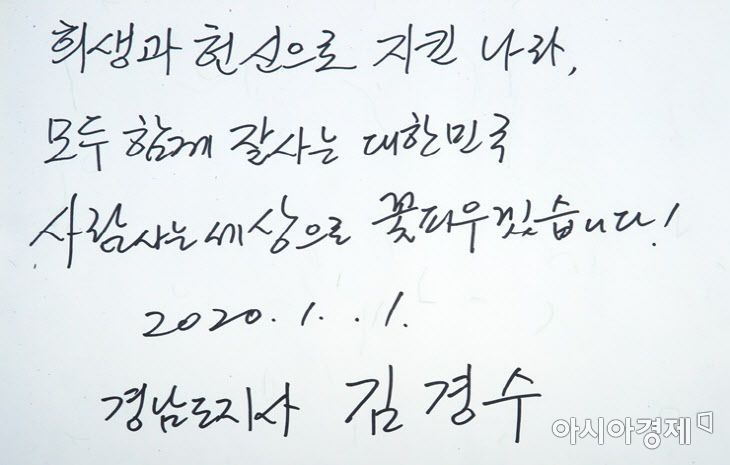 희생과 헌신으로 지킨 나라,
모두 함께 잘사는 대한민국
사람사는 세상으로 꽃피우겠습니다!
2020. 1. . 1.
경남도지사 김경수
아시아경제